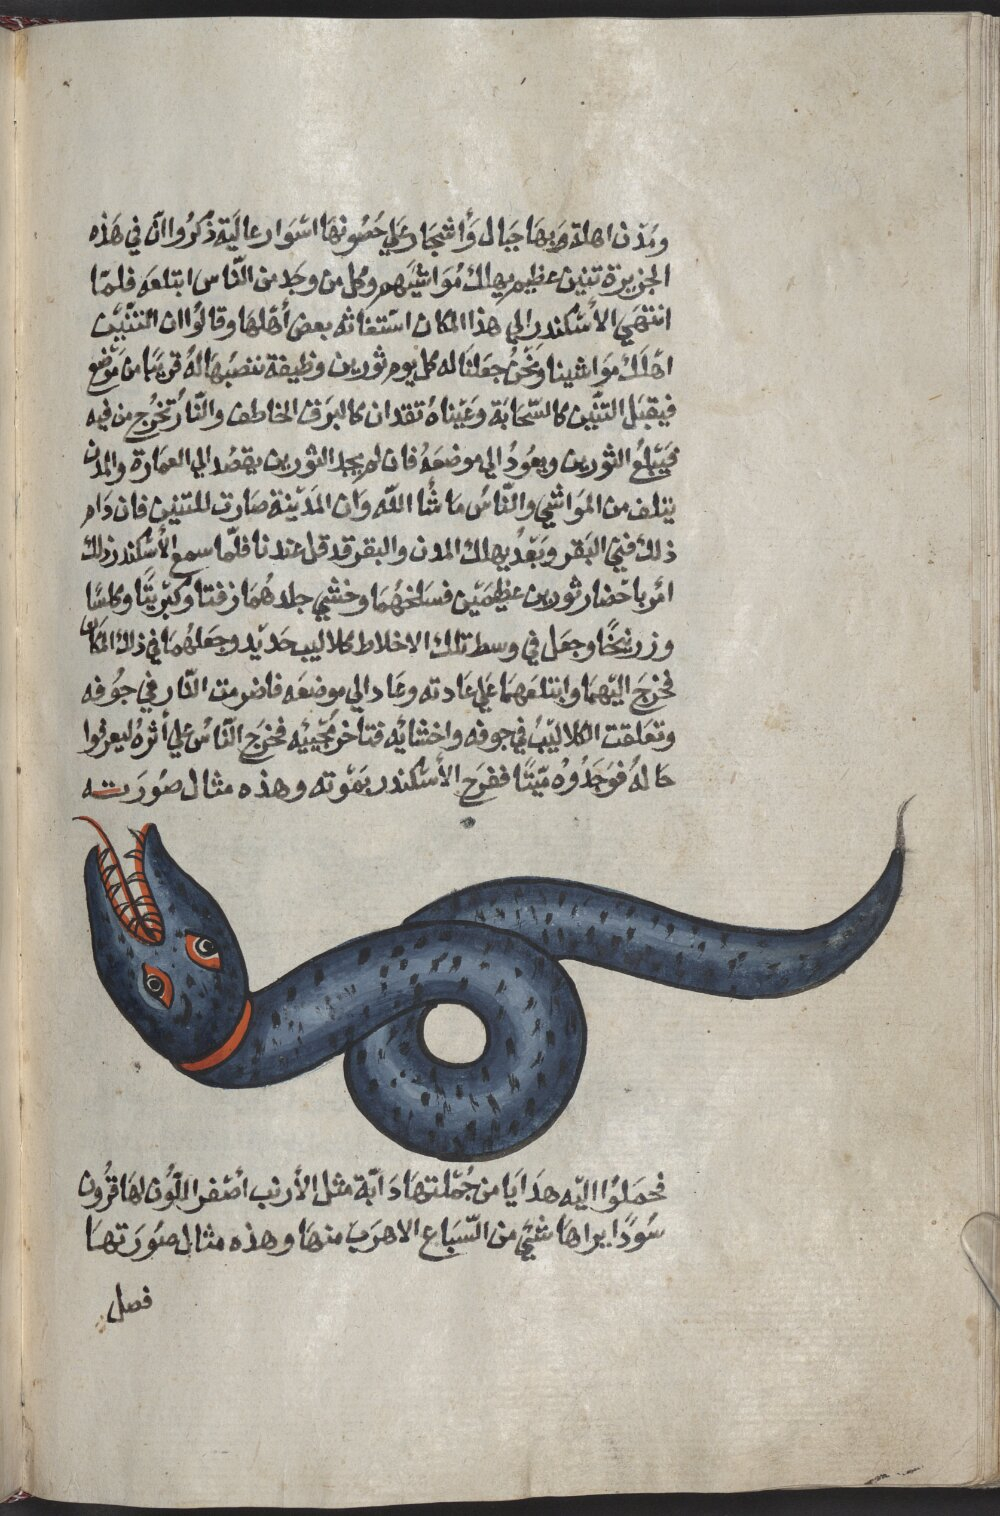 ومدن اهلة وبها جبال وأشجار علي حصونها اسوار عالية ذكروا ان في هذه
الجزيرة تنين عظيم يهلك مواشيهم وكل من وجد من الناس ابتلعه فلما
انتهي الأسكندر الي هذا المكان استغاثه بعض أهلها وقالوا ان التنين
اهلك مواشينا ونحن جعلنا له كل يوم ثورين وظيفة ننصبها له قريبا من موضع
فيقبل التنين كالسحابة وعيناه تقدان كالبرق الخاطف والنار تخرج من فيه
فيبلع الثورين ويعود الي موضعه فان لم يجد الثورين يقصد الي العمارة والمدن
يتلف من المواشي والناس ما شأ الله وان المدينة صارت للتنين فان دام
ذلك فني البقر وبعد يهلك المدن والبقر قد قل عندنا فلما سمع الأسكندر ذلك
امر باحضار ثورين عظيمين فسلخهما وحشي جلدهما زفتا وكبريتا وكلسا
وزرنيخا وجعل في وسط تلك الاخلاط كلاليب حديد وجعلهما في ذلك المكان
فخرج اليهما وابتلعهما علي عادته وعاد الي موضعه فاضرمت النار في جوفه
وتعلقت الكلاليب في جوفه واحشائه فتاخر مجيئه فخرج الناس علي أثره ليعرفوا
حاله فوجدوه ميتا ففرح الأسكندر بموته وهذه مثال صورته
فحملوا اليه هدايا من جملتها دابة مثل الأرنب أصفر اللون لها قرون
سودا يراها شئ من السباع الا هرب منها وهذه مثال صورتها
فصل